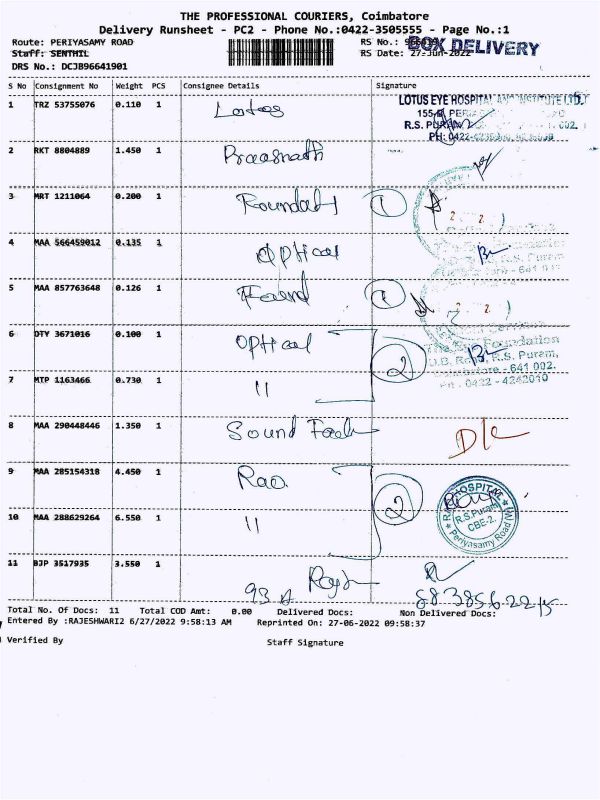 THE PROFESSIONAL COURIERS, Coimbatore
Delivery Runsheet - PC2 - Phone No.:0422-3505555 - Page No.:1
Route: PERIYASAMY ROAD RS No.:
BOX DELIVERY
Staff: SENTHIL RS Date: 27-Jun-2022
DRS No.: DCJB96641901
S No Consignment No Weight PCS Consignee Details Signature
1 TRZ 53755076 0.110 1 Lotos
LOTUS EYE HOSPITAL AND INSTITUTE LTD.
R.S. PURAM
2 RKT 8804889 1.450 1
3 MRT 1211064 0.200 1 1
4 MAA 566459012 0.135 1 Optical
R.S. Puram
641 0
5 MAA 857763648 0.126 1 Found 1
6 DTY 3671016 0.100 1 Optical 2
Foundation
D.B. Road, R.S. Puram,
Coimbatore - 641 002.
PH : 0422 - 4242010
7 MTP 1163466 0.730 1 "
8 MAA 290448446 1.350 1 Sound D/c
9 MAA 285154318 4.450 1 Rao 2
HOSPITAL
R.S.Puram
CBE-2.
Periyasamy Road
10 MAA 288629264 6.550 1 "
11 BJP 3517935 3.550 1
93 A
Total No. Of Docs: 11 Total COD Amt: 0.00 Delivered Docs: Non Delivered Docs:
Entered By :RAJESHWARI2 6/27/2022 9:58:13 AM Reprinted On: 27-06-2022 09:58:37
Verified By Staff Signature